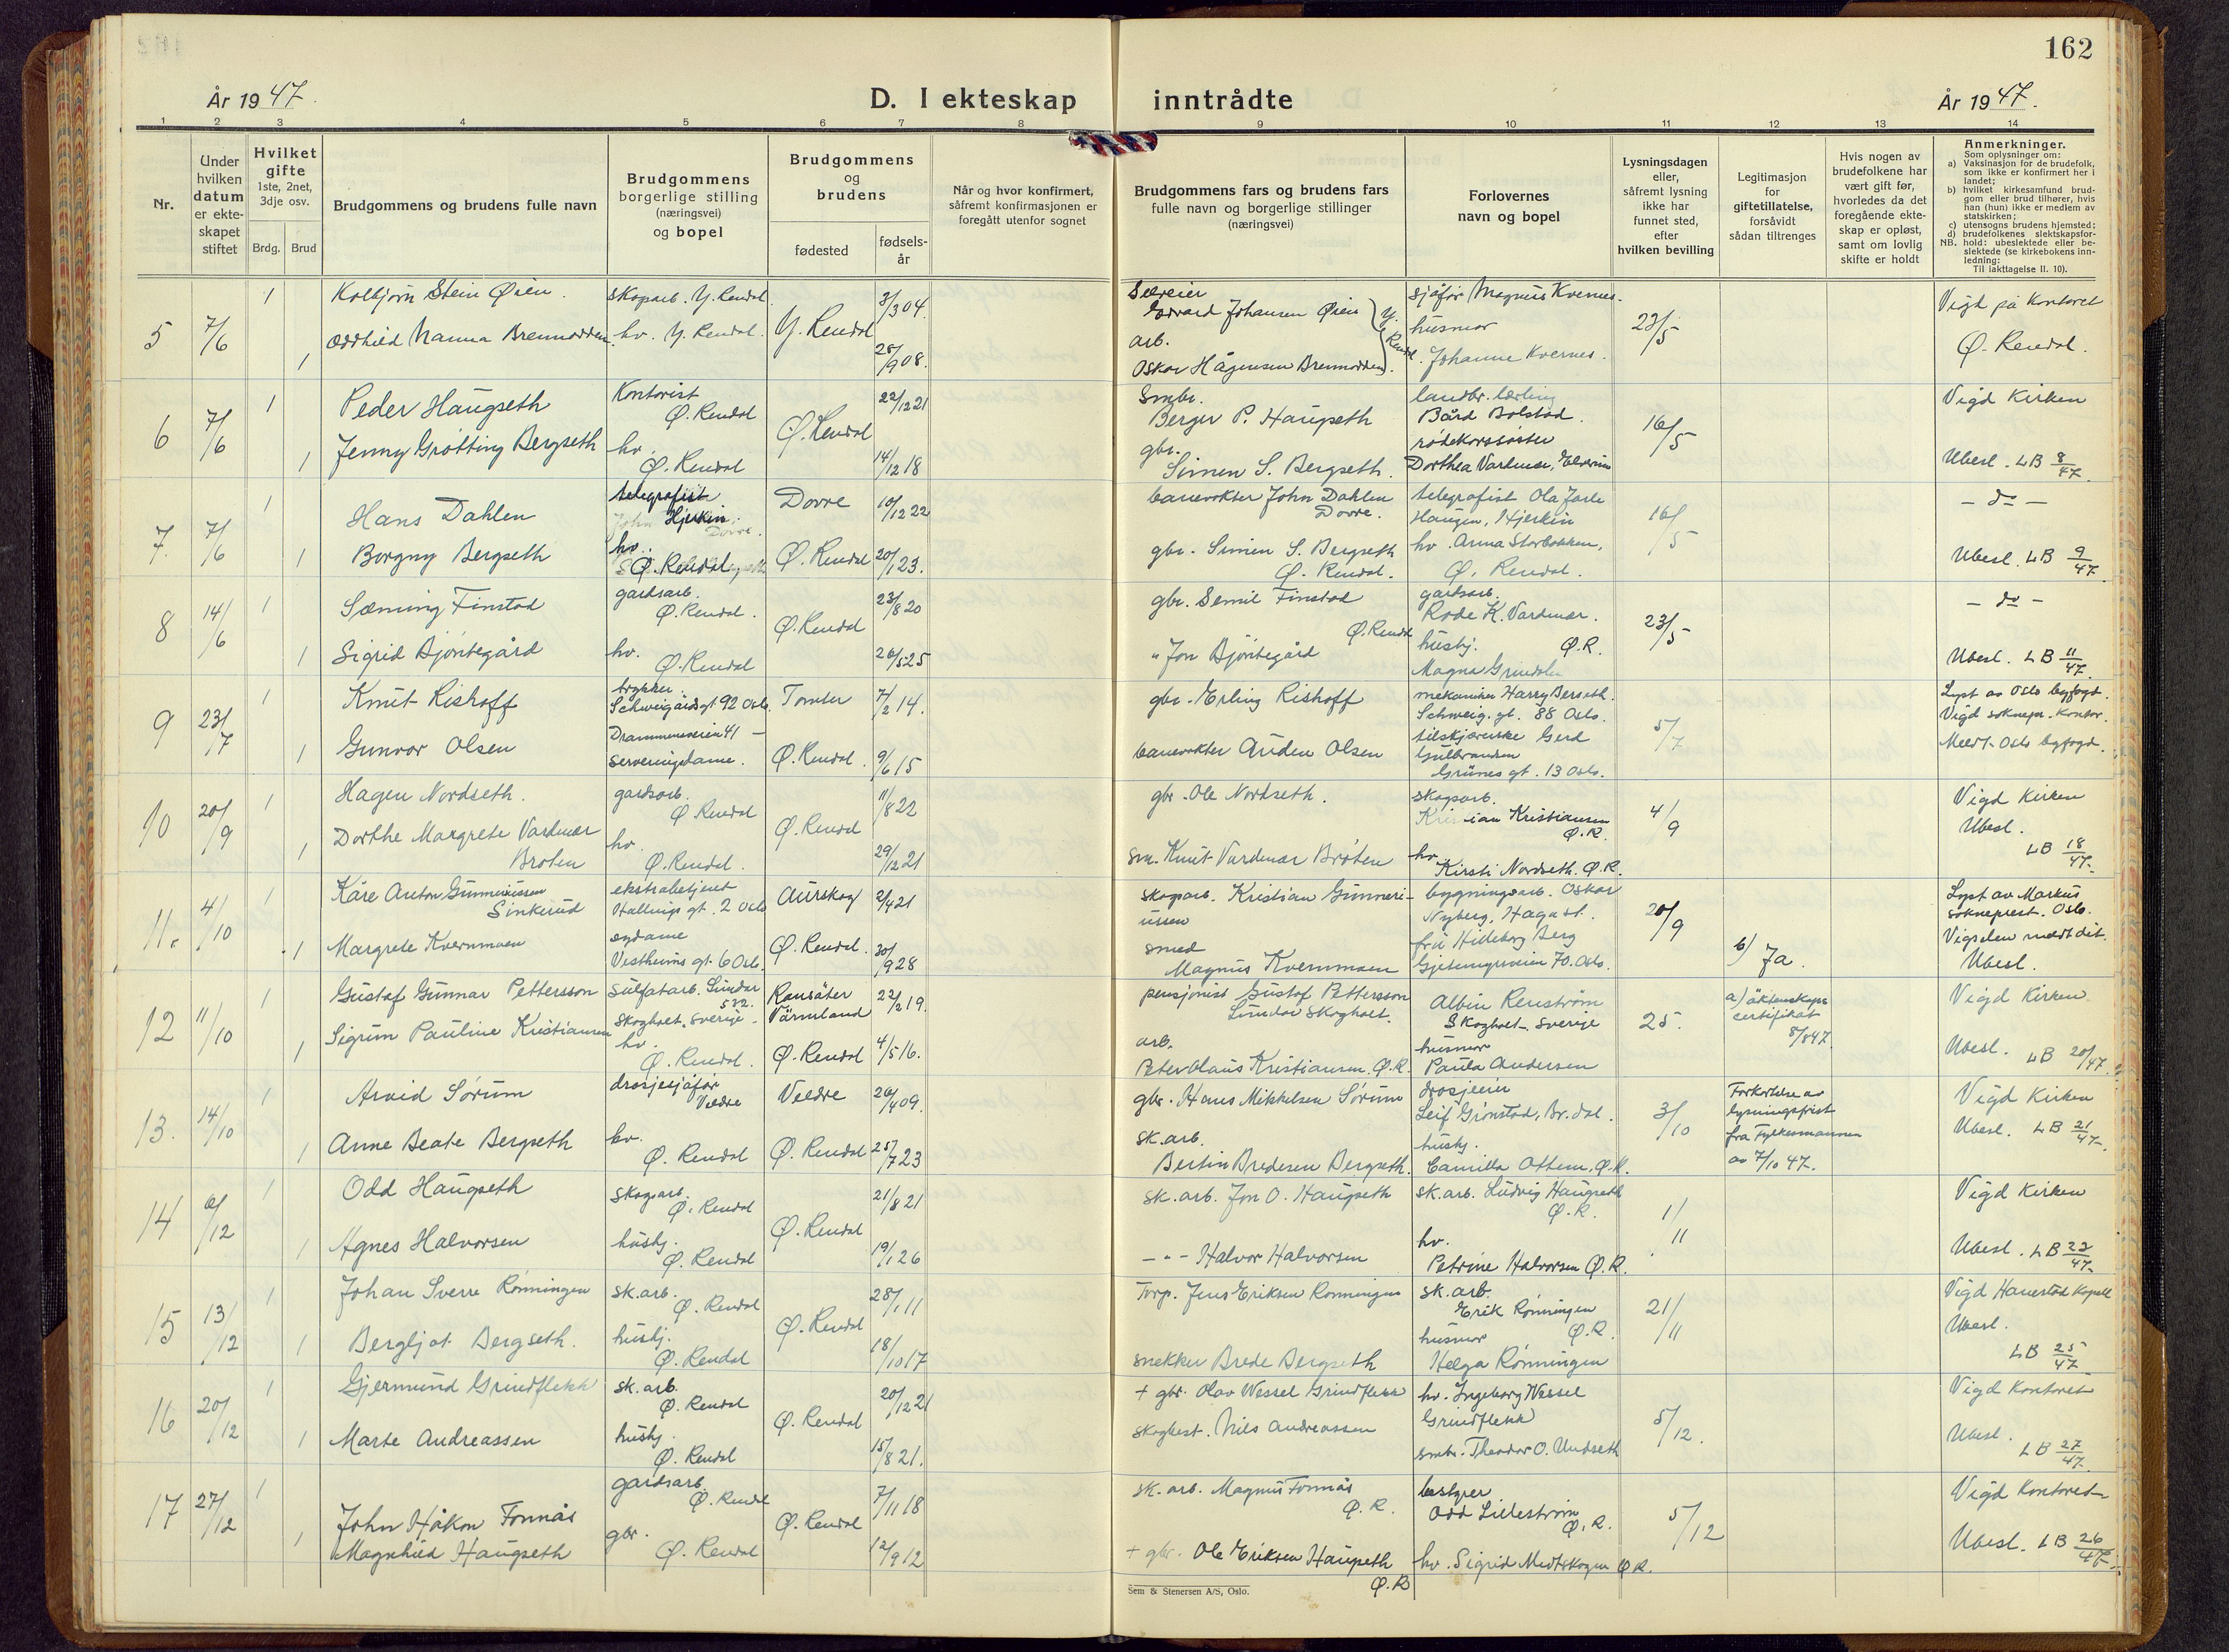 162
År 1947.
D. I ekteskap inntrådte
År 1947.
1 2 3 4 5 6 7 8 9 10 11 12 13 14
Nr.
Under hvilken datum er ekteskapet stiftet
Hvilket gifte
1ste, 2net, 3dje osv.
Brdg. Brud
Brudgommens og brudens fulle navn
Brudgommens
borgerlige stilling
(næringsvei)
og bopel
Brudgommens
og
brudens
fødested
fødsels-
år
Når og hvor konfirmert,
såfremt konfirmasjonen er
foregått utenfor sognet
Brudgommens fars og brudens fars
fulle navn og borgerlige stillinger
(næringsvei)
Forlovernes
navn og bopel
Lysningsdagen
eller,
såfremt lysning
ikke har
funnet sted,
efter
hvilken bevilling
Legitimasjon
for
giftetillatelse,
forsåvidt
sådan tiltrenges
Hvis nogen av
brudefolkene har
vært gift før,
hvorledes da det
foregående ekte-
skap er opløst,
samt om lovlig
skifte er holdt
Anmerkninger.
Som oplysninger om:
a) Vaksinasjon for de brudefolk,
som ikke er konfirmert her i
landet;
b) hvilket kirkesamfund brud-
gom eller brud tilhører, hvis
han (hun) ikke er medlem av
statskirken;
c) utensogns brudens hjemsted;
d) brudefolkenes slektskapsfor-
NB. hold: ubeslektede eller be-
slektede (se kirkebokens inn-
ledning:
Til iakttagelse II. 10).
5 7/6 1 Kolbjørn Stein Øien. skogarb. Y. Rendal. Y. Rendal 3/3 04. Selveier Edvard Johansen Øien Y. Rendal sjåfør Magnus Kvernes. 23/5 Vigd på Kontoret
1 Oddhild Nanna Brenmodden hv. Y. Rendal. 28/9 08. arb. Oskar Hågensen Brenmodden husmor Johanne Kvernes. Ø. Rendal.
6 7/6 1 Peder Haugseth Kontorist Ø. Rendal Ø. Rendal 22/12 21 Smbr. Berger P. Haugseth landbr. lærling Bård Bolstad. 16/5 Vigd Kirken
1 Jenny Grøtting Bergseth hv. Ø. Rendal 14/12 18 gbr. Simen S. Bergseth. rødekorssøster Dorthea Vardmær, Elverum Ubesl. LB 8/47.
7. 7/6 1 Hans Dahlen telegrafist Hjerkin. Dovre. Dovre 10/12 22 banevokter John Dahlen Dovre. telegrafist Ola Jarle Haugen, Hjerkin 16/5 - do -
1 Borgny Bergseth hv. Ø. Rendal Ø. Rendal 20/1 23. gbr. Simen S. Bergseth Ø. Rendal. hv. Anna Storbekken, Ø. Rendal. Ubesl. LB 9/47.
8 14/6 1 Sæming Finstad gardsarb. Ø. Rendal. Ø. Rendal 23/8 20 gbr. Semil Finstad Ø. Rendal gardsarb. Rode K. Vardmær. Ø.R. 23/5 - do -
1 Sigrid Bjøntegård hv. Ø. Rendal 26/5 25 " Jon Bjøntegård hushj. Magna Grindalen Ubesl. LB 11/47.
9 23/7 1 Knut Rishoff trykker Schweigårdsgt. 92 Oslo. Tomter 7/2 14. gbr. Erling Rishoff mekaniker Harry Berseth. Schweig. gt. 88 Oslo. 5/7 Lyst av Oslo byfogd. Vigd soknepr. kontor.
1 Gunvor Olsen Drammensveien 41 - serveringsdame. Ø. Rendal. 9/6 15 banevokter Auden Olsen tilskjærerske Gerd Gulbrandsen Grünes gt. 13 Oslo. Meldt Oslo byfogd.
10 20/9 1 Hagen Nordseth. gardsarb. Ø Rendal Ø. Rendal 11/8 22 gbr. Ole Nordseth. skogsarb. Kristian Kristiansen Ø.R. 4/9 Vigd Kirken Ubesl.
1 Dorthe Margrete Vardmær Broten hv. Ø. Rendal. 29/12 21 sm. Knut Vardmær Bróten hv. Kirsti Nordseth. Ø.R. LB 18/47.
11. 4/10 1 Kåre Anton Gunneriussen Sinkerud ekstrabetjent Hallings gt. 2 Oslo Aurskog 2/4 21 skogarb. Kristian Gunneriussen bygningsarb. Oskar Nyberg, Haga st. 20/9 Lyst av Markus sokneprest. Oslo.
1 Margrete Kvernmoen sydame Vestheims gt. 6 Oslo. Ø. Rendal. 30/9 28 smed Magnus Kvernmoen frú Hildeborg Berg Gjetemyrsveien 70. Oslo. b) Ja. Vigselen meldt dit. Ubesl.
12 11/10 1 Gustaf Gunnar Pettersson Sulfatarb. Lindar 532. Skoghall, Sverige. Ransäter Värmland 22/2 19. pensjonist Gustaf Pettersson Lindar Skoghall. Albin Renström Skoghall, Sverige 25. a) äktenskaps certifikat 8/8 47. Vigd Kirken
1 Sigrun Pauline Kristiansen hv. Ø. Rendal. Ø. Rendal 4/5 16. arb. Peter Olaus Kristiansen. Ø.R. husmor Paula Andersen Ubesl. LB 20/47.
13. 14/10 1 Arvid Sørum drosjesjåfør Veldre Veldre 20/4 09. gbr. Hans Mikkelsen Sørum drosjeeier Leif Grønstad, Br. dal. 3/10 Forkortelse av lysningsfrist fra Fylkesmannen av 7/10 47. Vigd Kirken
1 Anne Beate Bergseth hv. Ø. Rendal Ø. Rendal 25/7 23 sk.arb. Bertin Bredesen Bergseth. hushj. Camilla Ottem, Ø.R. Ubesl. LB 21/47.
14 6/12 1 Odd Haugseth Skogsarb. Ø. Rendal Ø. Rendal 21/8 21 sk. arb. Jon O. Haugseth sk. arb. Ludvig Haugseth Ø.R. 1/11 Vigd Kirken
1 Agnes Halvorsen hushj. Ø. Rendal 19/1 26 - " - Halvor Halvorsen hv. Petrine Halvorsen Ø.R. Ubesl. LB 22/47.
15 13/12 1 Johan Sverre Rønningen sk. arb. Ø. Rendal Ø. Rendal 28/1 11 Torp. Jens Eriksen Rønningen sk. arb. Erik Rønningen Ø.R. 21/11 Vigd Hanestad Kapell Ubesl.
1 Bergljot Bergseth. hushj. Ø. Rendal 18/10 17 snekker Brede Bergseth husmor Helga Rønningen LB 25/47.
16 20/12 1 Gjermund Grindflekk sk. arb. Ø. Rendal Ø. Rendal 20/12 21 + gbr. Olav Wessel Grindflekk hv. Ingeborg Wessel Grindflekk 5/12. Vigd Kontoret
1 Marte Andreassen hushj. Ø. Rendal 15/8 21. skogbest. Nils Andreassen smbr. Theodor O. Undseth Ubesl. LB 27/47.
17 27/12 1 John Håkon Fonnås gardsarb. Ø. Rendal Ø. Rendal 7/11 18 sk. arb. Magnus Fonnås Ø.R. bestyrer Odd Lillestrøm Ø.R. 5/12 Vigd Kontoret
1 Magnhild Haugseth gbr. Ø. Rendal 12/9 12 + gbr. Ole Eriksen Haugseth Ø.R hv. Sigrid Medtskogen Ø.R. Ubesl. LB 26/47.
Sem & Stenersen A/S, Oslo.